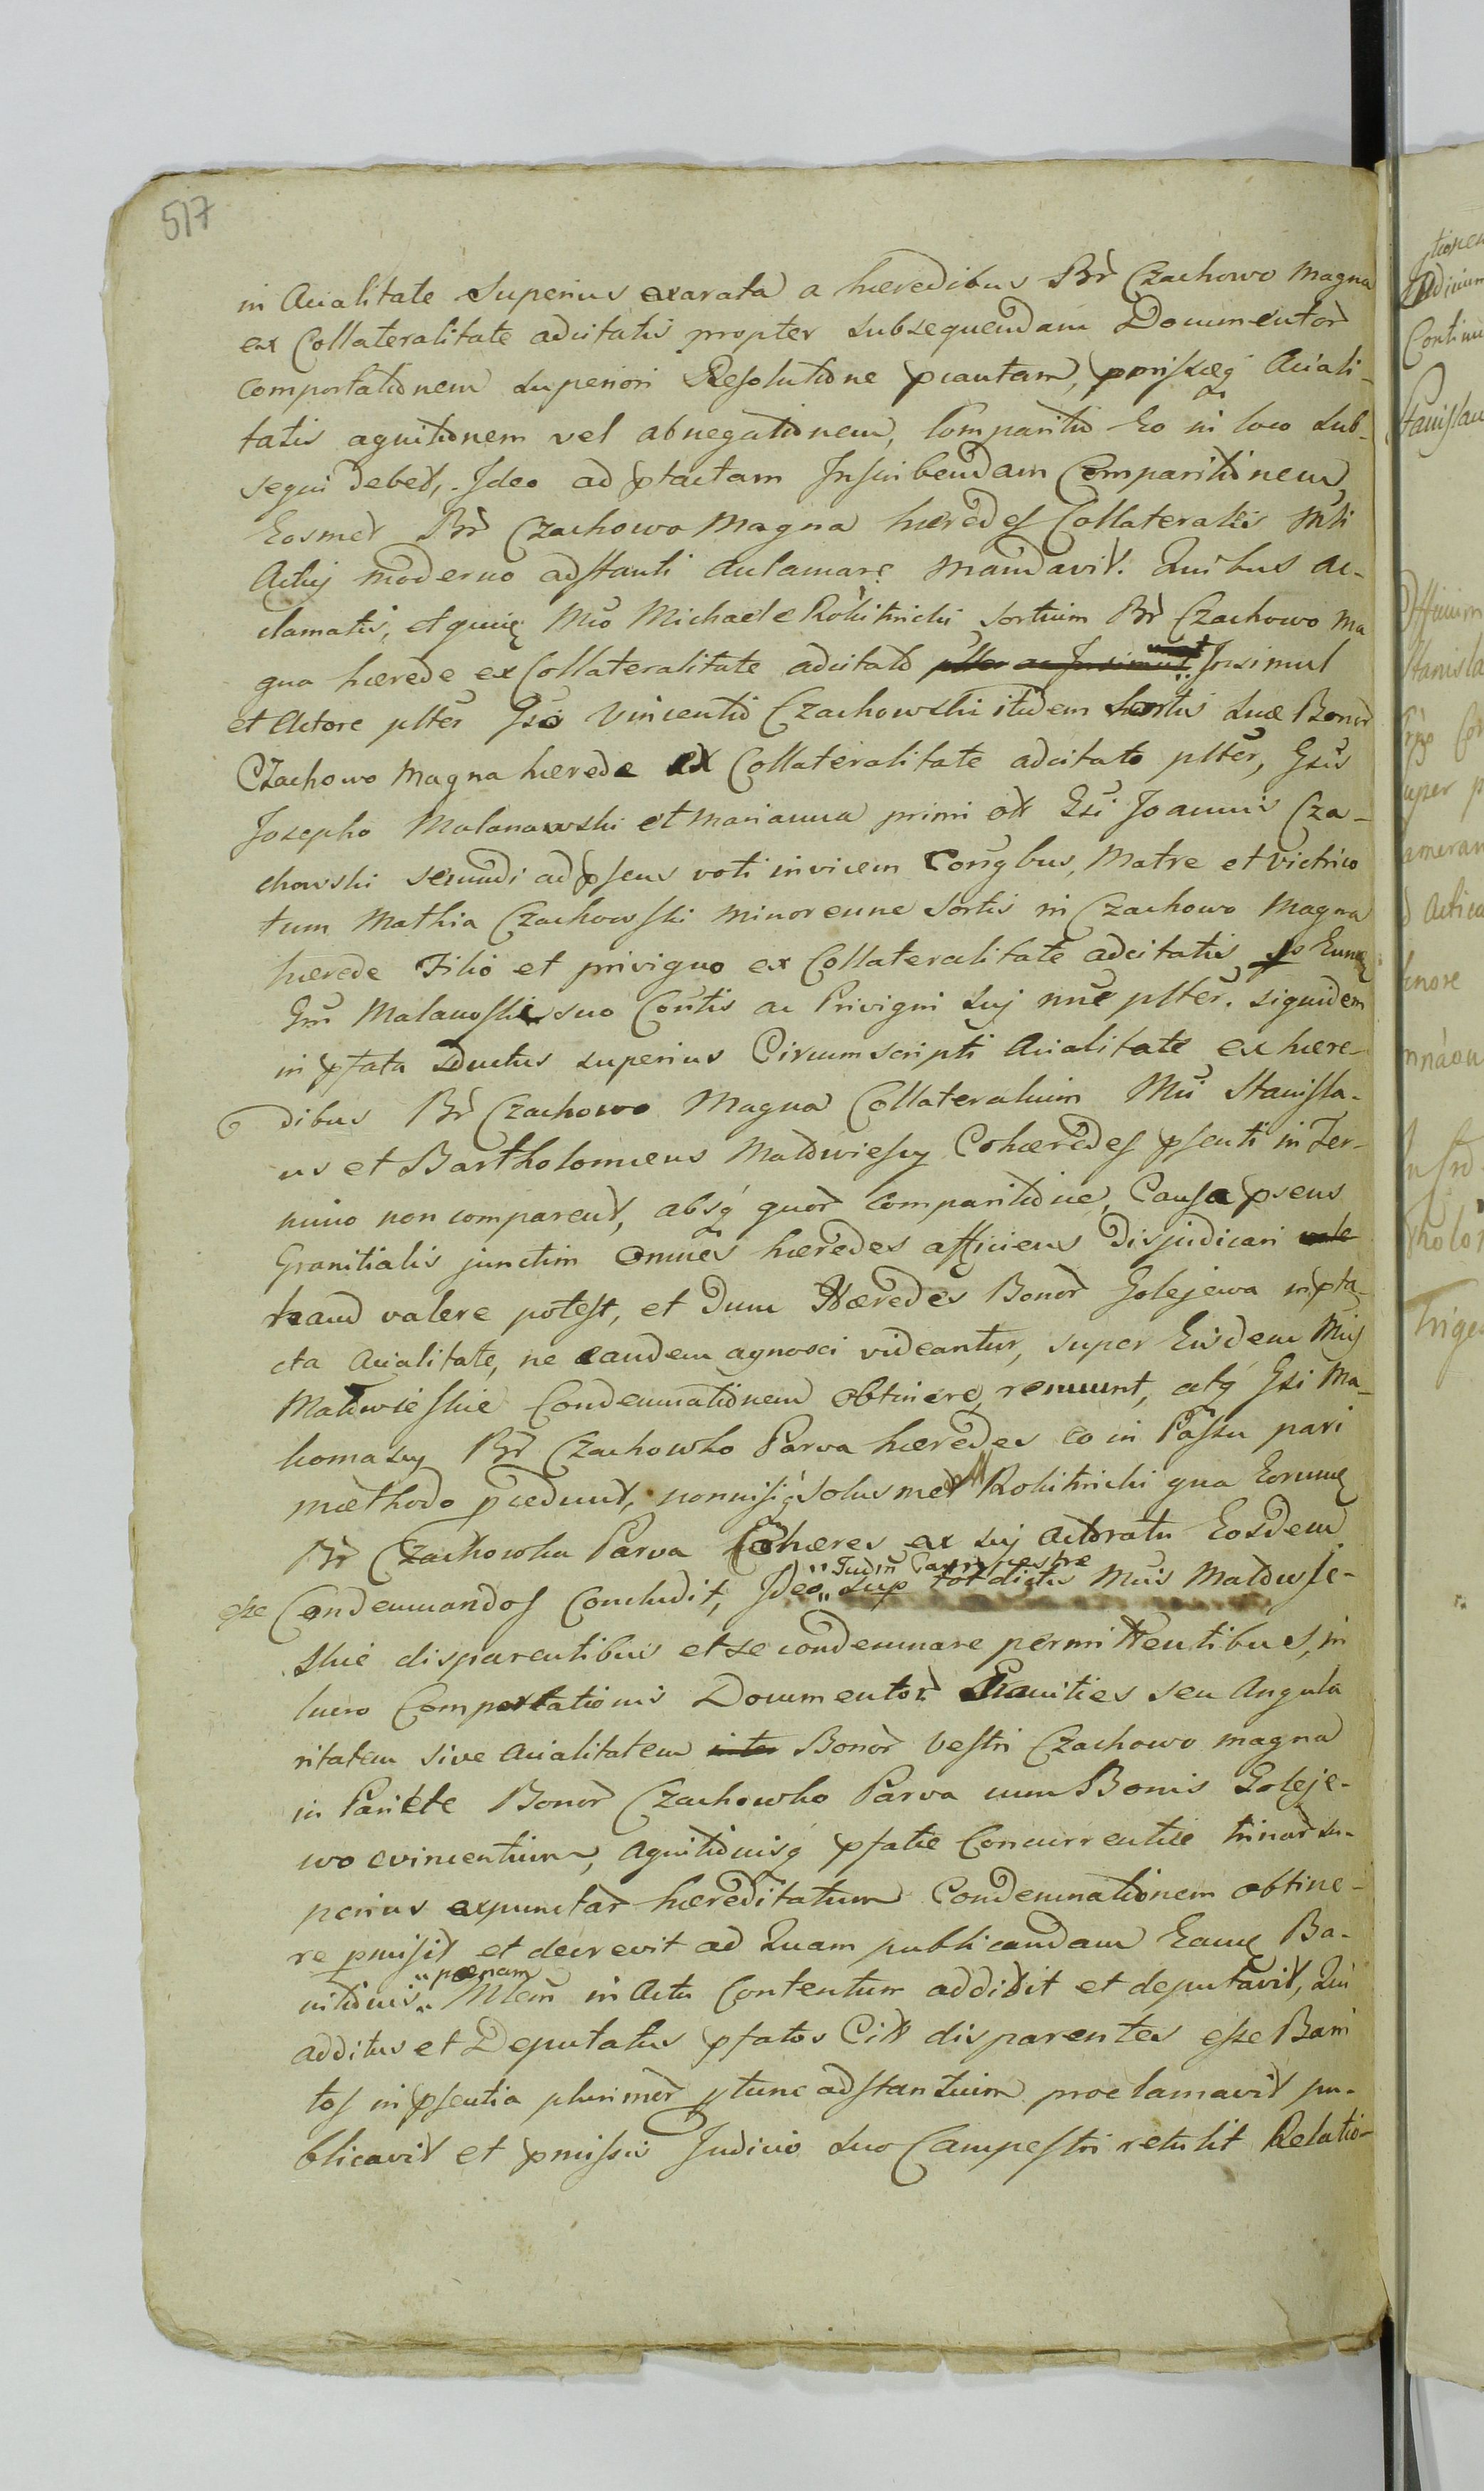 517
in Acialitate Superius exarata a hæredibus Br̃ Czachowo Magna
ex Collateralitate adcitatis propter subsequendam Documentor̃
comportationem superiori Resolutione pcautam, pmissæq́ Aciali-
tatis agnitionem vel abnegationem, Comparitio Eo in loco sub-
sequi debet, Ideo ad ptactam Inscribendam Comparitionem,
Eosmet Br̃ Czachowo Magna hæredes Collaterales Mli
Actuj moderno adstanti aclamare mandavit. Quibus ac-
clamatis, et quia Mco Michaele Rokitnicki sortium Br̃ Czachowo Ma
gna hærede ex Collateralitate adcitato Insimul
et Actore plter Gso Vincentio Czachowski itidem Sortis suæ Bonor̃
Czachowo Magna hærede ex Collateralitate adcitato plter, Gsis
Josepho Malanowski et Marianna primi olt Gsi Joannis Cza-
chowski secundi ad psens voti invicem Conjbus, Matre et victrico
tum Mathia Czachowski minorenne Sortis in Czachowo Magna
hærede Filio et privigno ex Collateralitate adcitatis
Gm Malanoski suo Contis ac Privigni suj nne plter. siquidem
in pfata ductus superius Circumscripti Acialitate ex hære-
dibus Br̃ Czachowo Magna Collateralium Mci Stanisla-
us et Bartholomeus Maldwiescy Cohæredes psenti in Ter-
mino non comparent, absq́ quor̃ Comparitione, Causa psens
Granitialis junctim omnes hæredes afficiens Disjudicari vale
haud valere potest, et dum Hæredes Bonor̃ Golejewa in pta-
cta Acialitate, ne eandem agnosci videantur, super Eisdem Mcis
Maldwieskie Condemnationem obtinere renuunt, atq́ Gsi Ma-
komascy Br̃ Czachowko Parva hæredes eo in Passu pari
mæthodo pcedunt, nonnisiq́ Solusmet M Rokitnicki qua Eorumq
Br̃ Czachowko Parva Cohæres ex suj Actoratu Eosdem
esse Condemnandos Concludit, Ideo „Judm Campestre
sup tot dictis Mcis Maldwie-
skie disparentibus et se condemnare permittentibus, in
lucro Comportationis Documentor̃ Granities seu Angula
ritatem sive Acialitatem inter Bonor̃ Vestri Czachowo magna
in Pariete Bonor̃ Czachowko Parva cum Bonis Goleje-
wo evincentium, agnitionisq́ pfatæ Concurrentiæ trinar̃ su-
perius expunctar̃ hæreditatum Condemnationem obtine-
re pmisit et decrevit ad Quam publicandam Eamq Ba-
nitionis „pænam
Mlem in Actu Contentum addidit et deputavit, Qui
additus et Deputatus pfatos Citt disparentes esse Bani
tos in psentia plurimor̃ ptunc adstantium proclamavit pu-
blicavit et pmissis Judicio suo Campestri retulit Relatio-